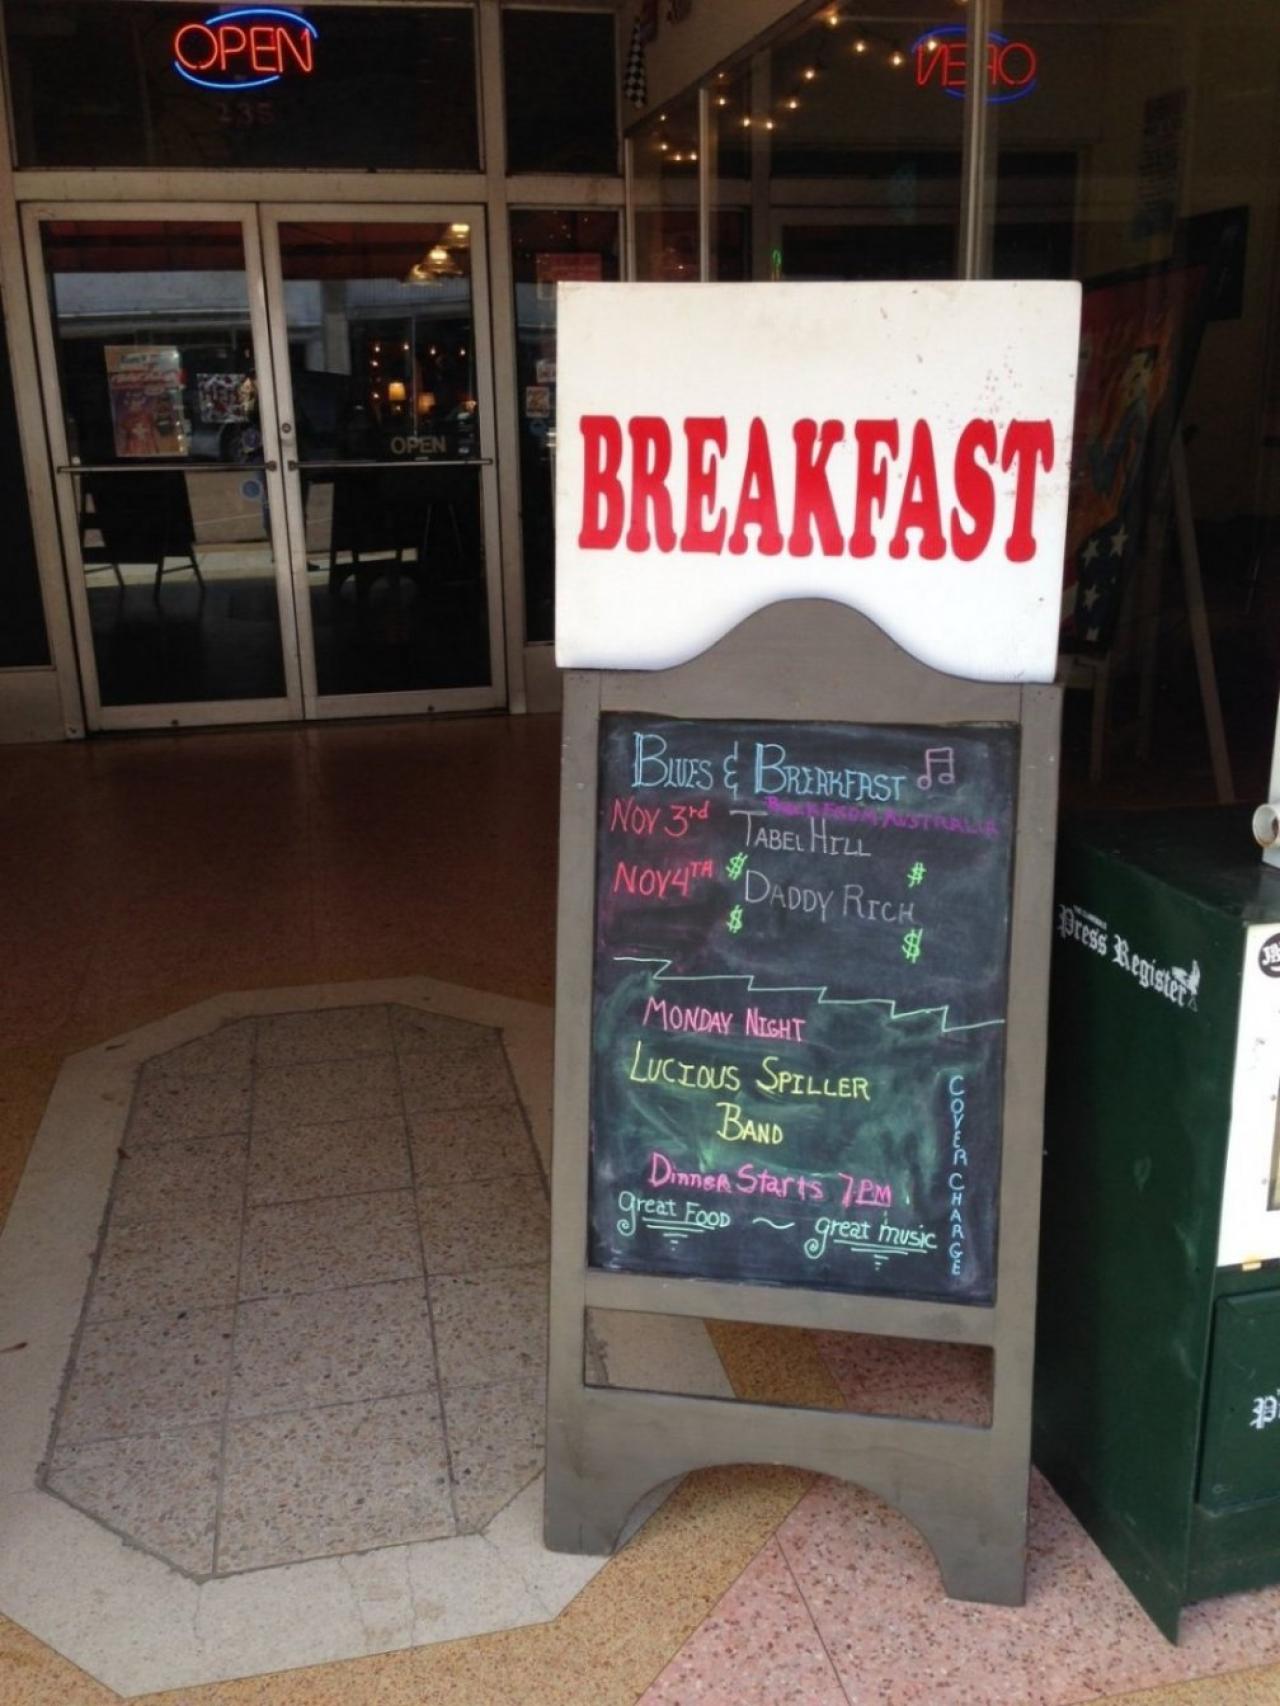 OPEN
OPEN
235
OPEN
BREAKFAST
BLUES & BREAKFAST
BACK FROM AUSTRALIA
NOV 3rd TABEL HILL
NOV 4TH $ DADDY RICH $
$ $
MONDAY NIGHT
LUCIOUS SPILLER
BAND
DINNER STARTS 7PM
great FOOD ~ great music
COVER CHARGE
Press Register